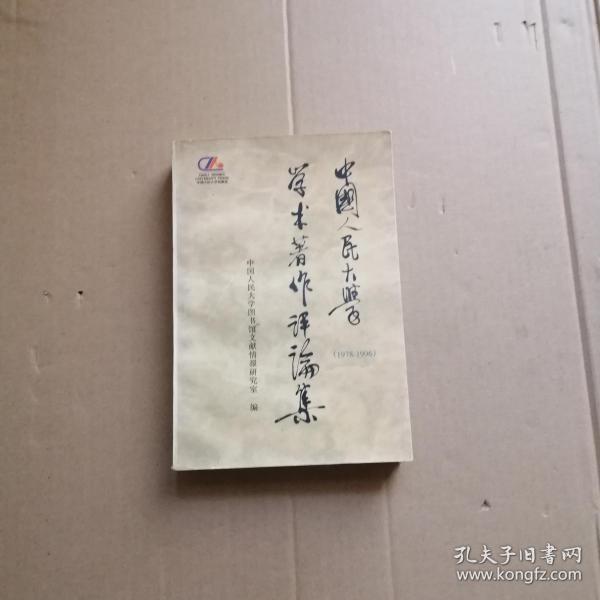 中國人民大學
(1978-1996)
学术著作評論集
中国人民大学图书馆文献情报研究室 编
孔夫子旧书网
www.kongfz.com